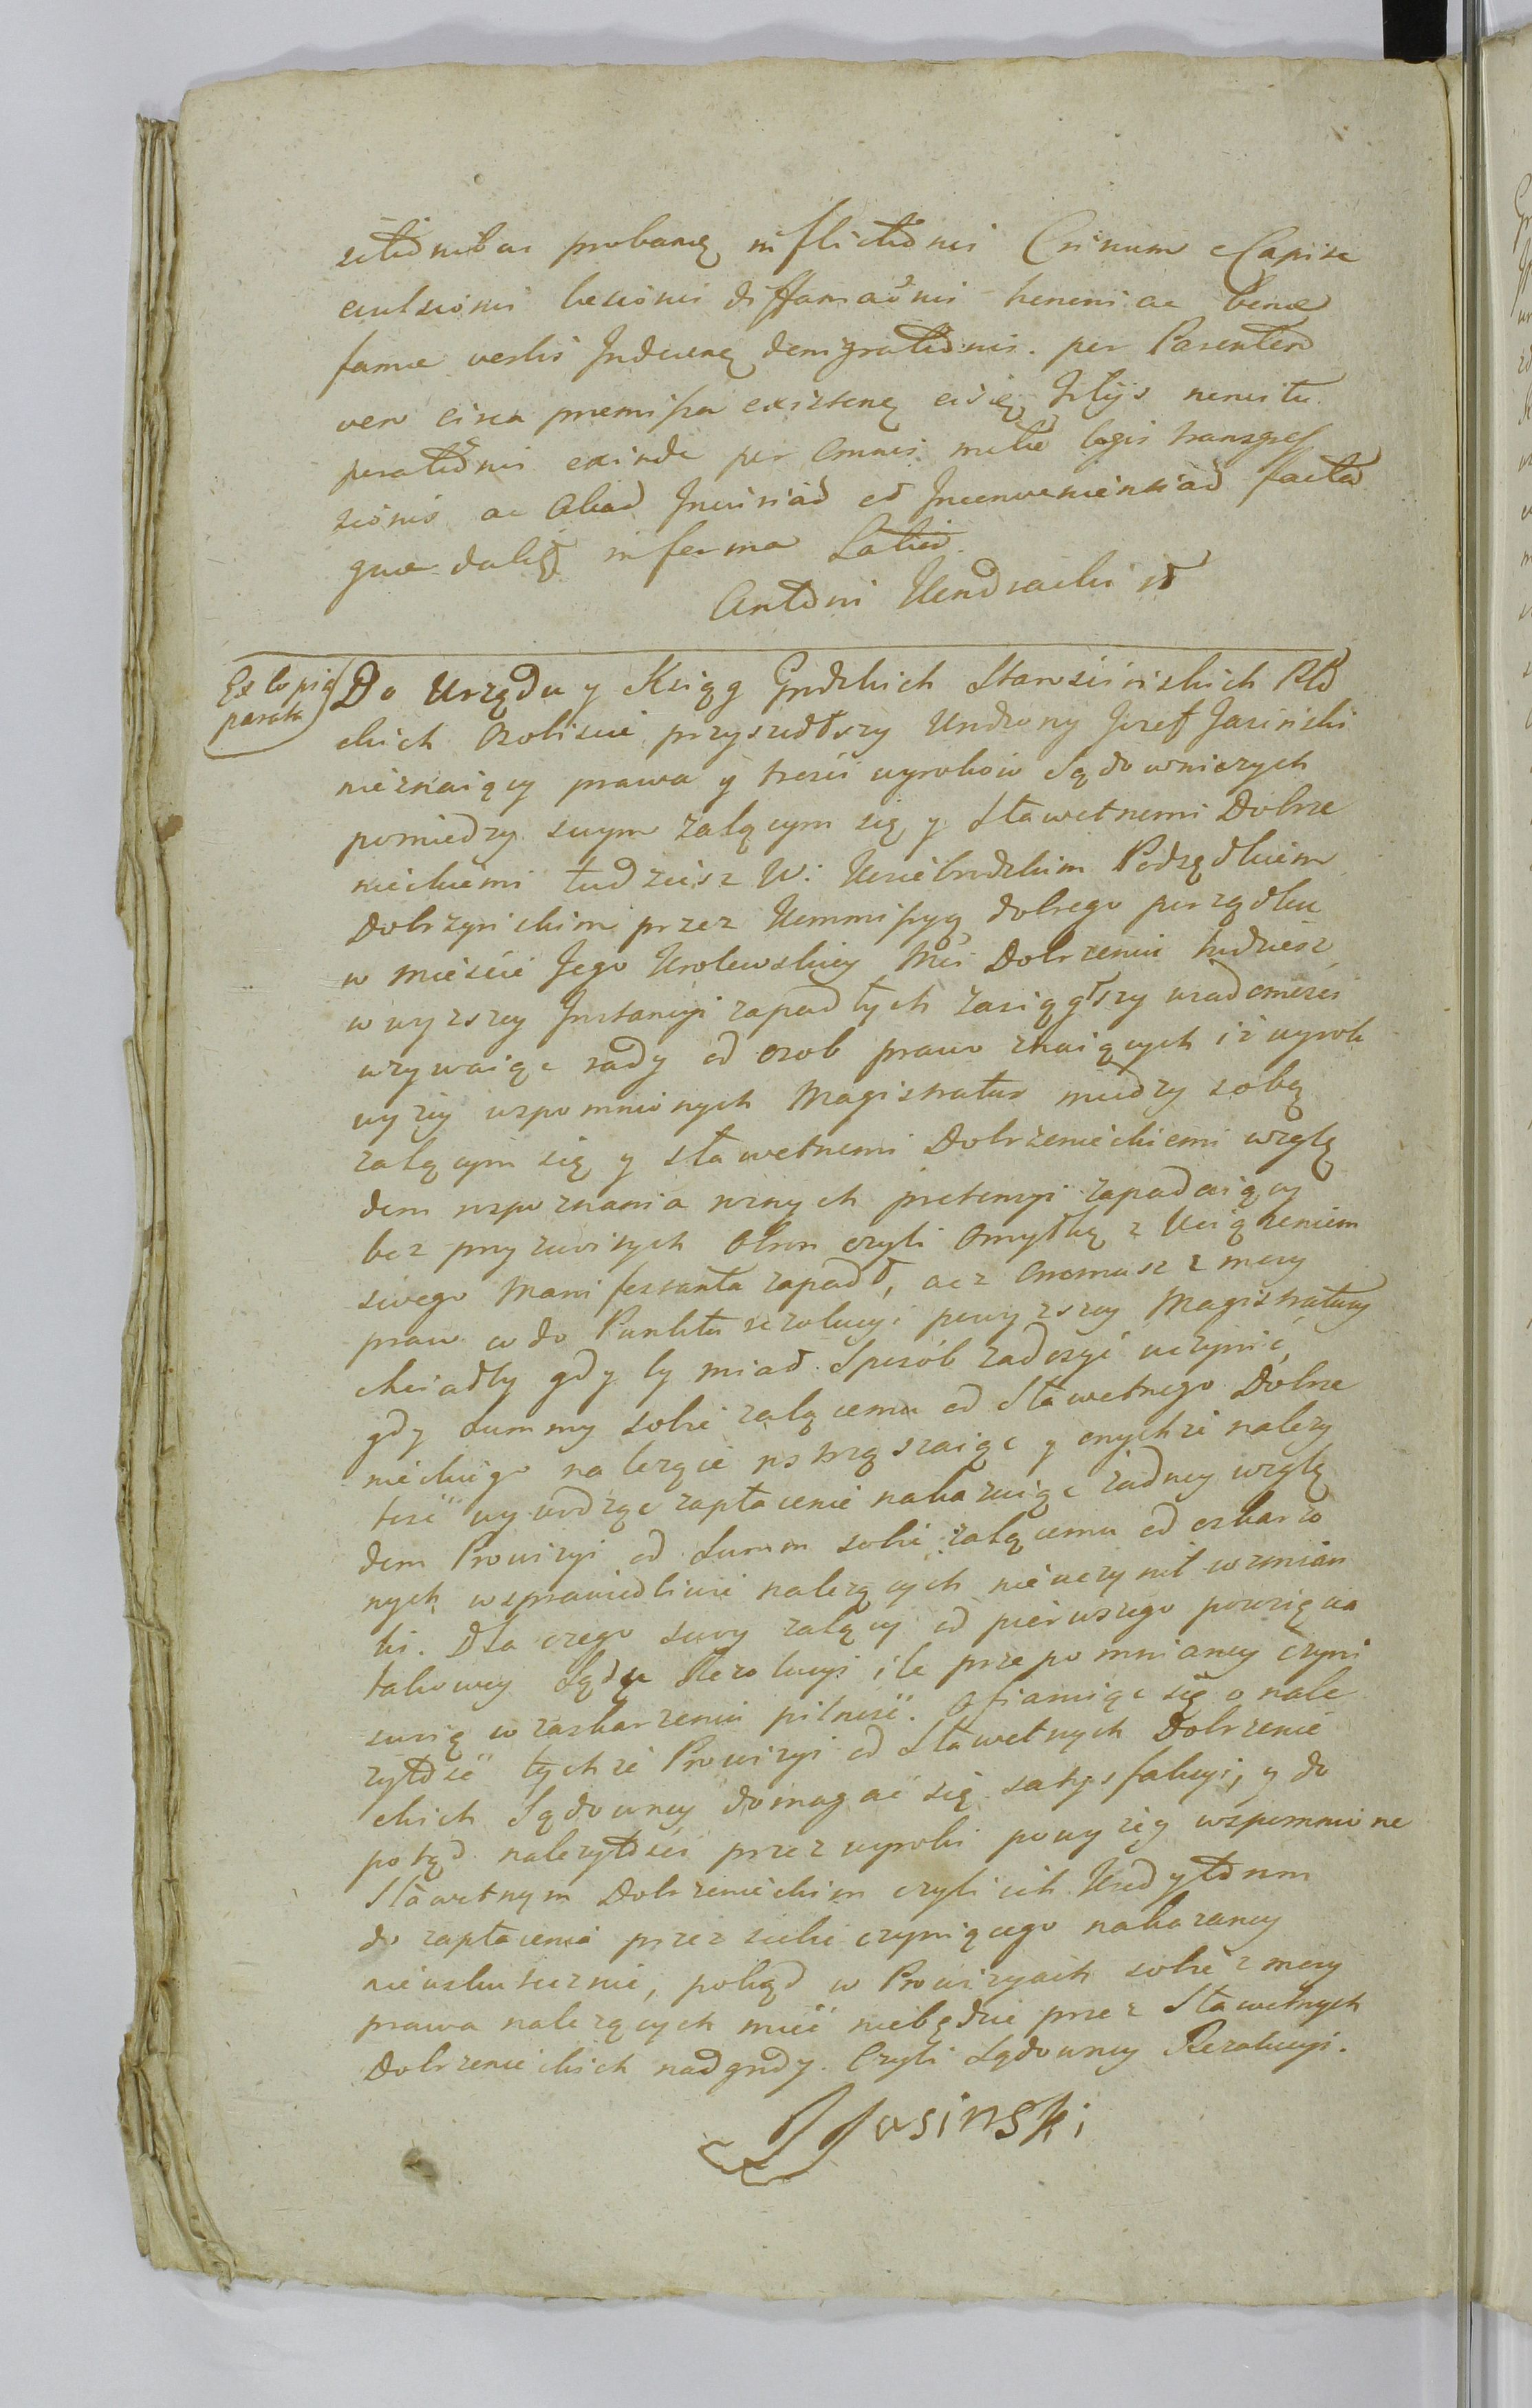 probanq inflictionis Crinium e Capite
evulsionis læsionis diffamaonis honoris ac bonæ
famæ vestis denigrationis. per Parentem
vero circa præmissa existenq eisq Filijs
perationis exinde per Omnes legis transgres
sionis ac Aliad Iniuriad et Inconvenientiad factad
quæ in forma Latiu
Antoni Kondracki
Ex Copia
parata
Do Urzędu y Ksiąg Grodzkich Starościńskich
skich Osobiscie przyszedłszy Urodzony Jozef Jasinski
nieznaiący prawa y tresci wyrokow Sądowniczych
pomiedzy swym załącym się y Sławetnemi Dobrze
nieckiemi tudziesz W: Podsędkiem
Dobrzynskim przez Kommissyą dobrego porządku
w miescie Jego Krolewskiey Mci Dobrzeniu tudziesz
w wyzszey Instancyi zapadłych zasiągłszy wiadomosci
uzywaiąc rady od osob prawo znaiących iz wyrok
wyzey wspomnionych Magistratur miedzy sobą
załącym się y sławetnemi Dobrzenieckiemi wzglę
dem rozpoznania roznych pretensyi zapadaiący
bez przyzwoitych Obron czyli Omyłkę z Uciązeniem
swego Manifestanta zapadł, acz Onemusz z mocy
praw co do Punktu rezolucyi powyzszey Magistratury
chciałby gdy by miał Sposób zadosyć uczynić,
gdy Summy sobie załącemu od Sławetnego Dobrze
nieckiego nalezące roztrząszaiąc y onychze nalezy
tość wywodząc zapłacenie nakazuiąc zadney wzglę
dem Prowizyi od Summ sobie załącemu od oskarzo
nych w sprawiedliwie nalezących nieuczynił wzmian
ki. Dla czego swoy załący od pierwszego powzięcia
takowey Sądu Rezolucyi ile przepomnianey czyni
swoią w zaskarzeniu pilność. Ofiaruiąc się o nale
zytość tychze Prowizyi od Sławetnych Dobrzenie
ckich Sądowney domagać się satysfakcyi, y do
potąd nalezytości przez wyroki powyzey wspomnione
Sławetnym Dobrzenieckim czyli ich Kredytorom
do zapłacenia przez siebie czyniącego nakazaney
nieuskuteczni, pokąd w Prowizyach sobie z mocy
prawa nalezących mieć niebędzie przez Sławetnych
Dobrzenieckich nadgrody. Czyli Sądowney Rezolucyi.
JJasinski